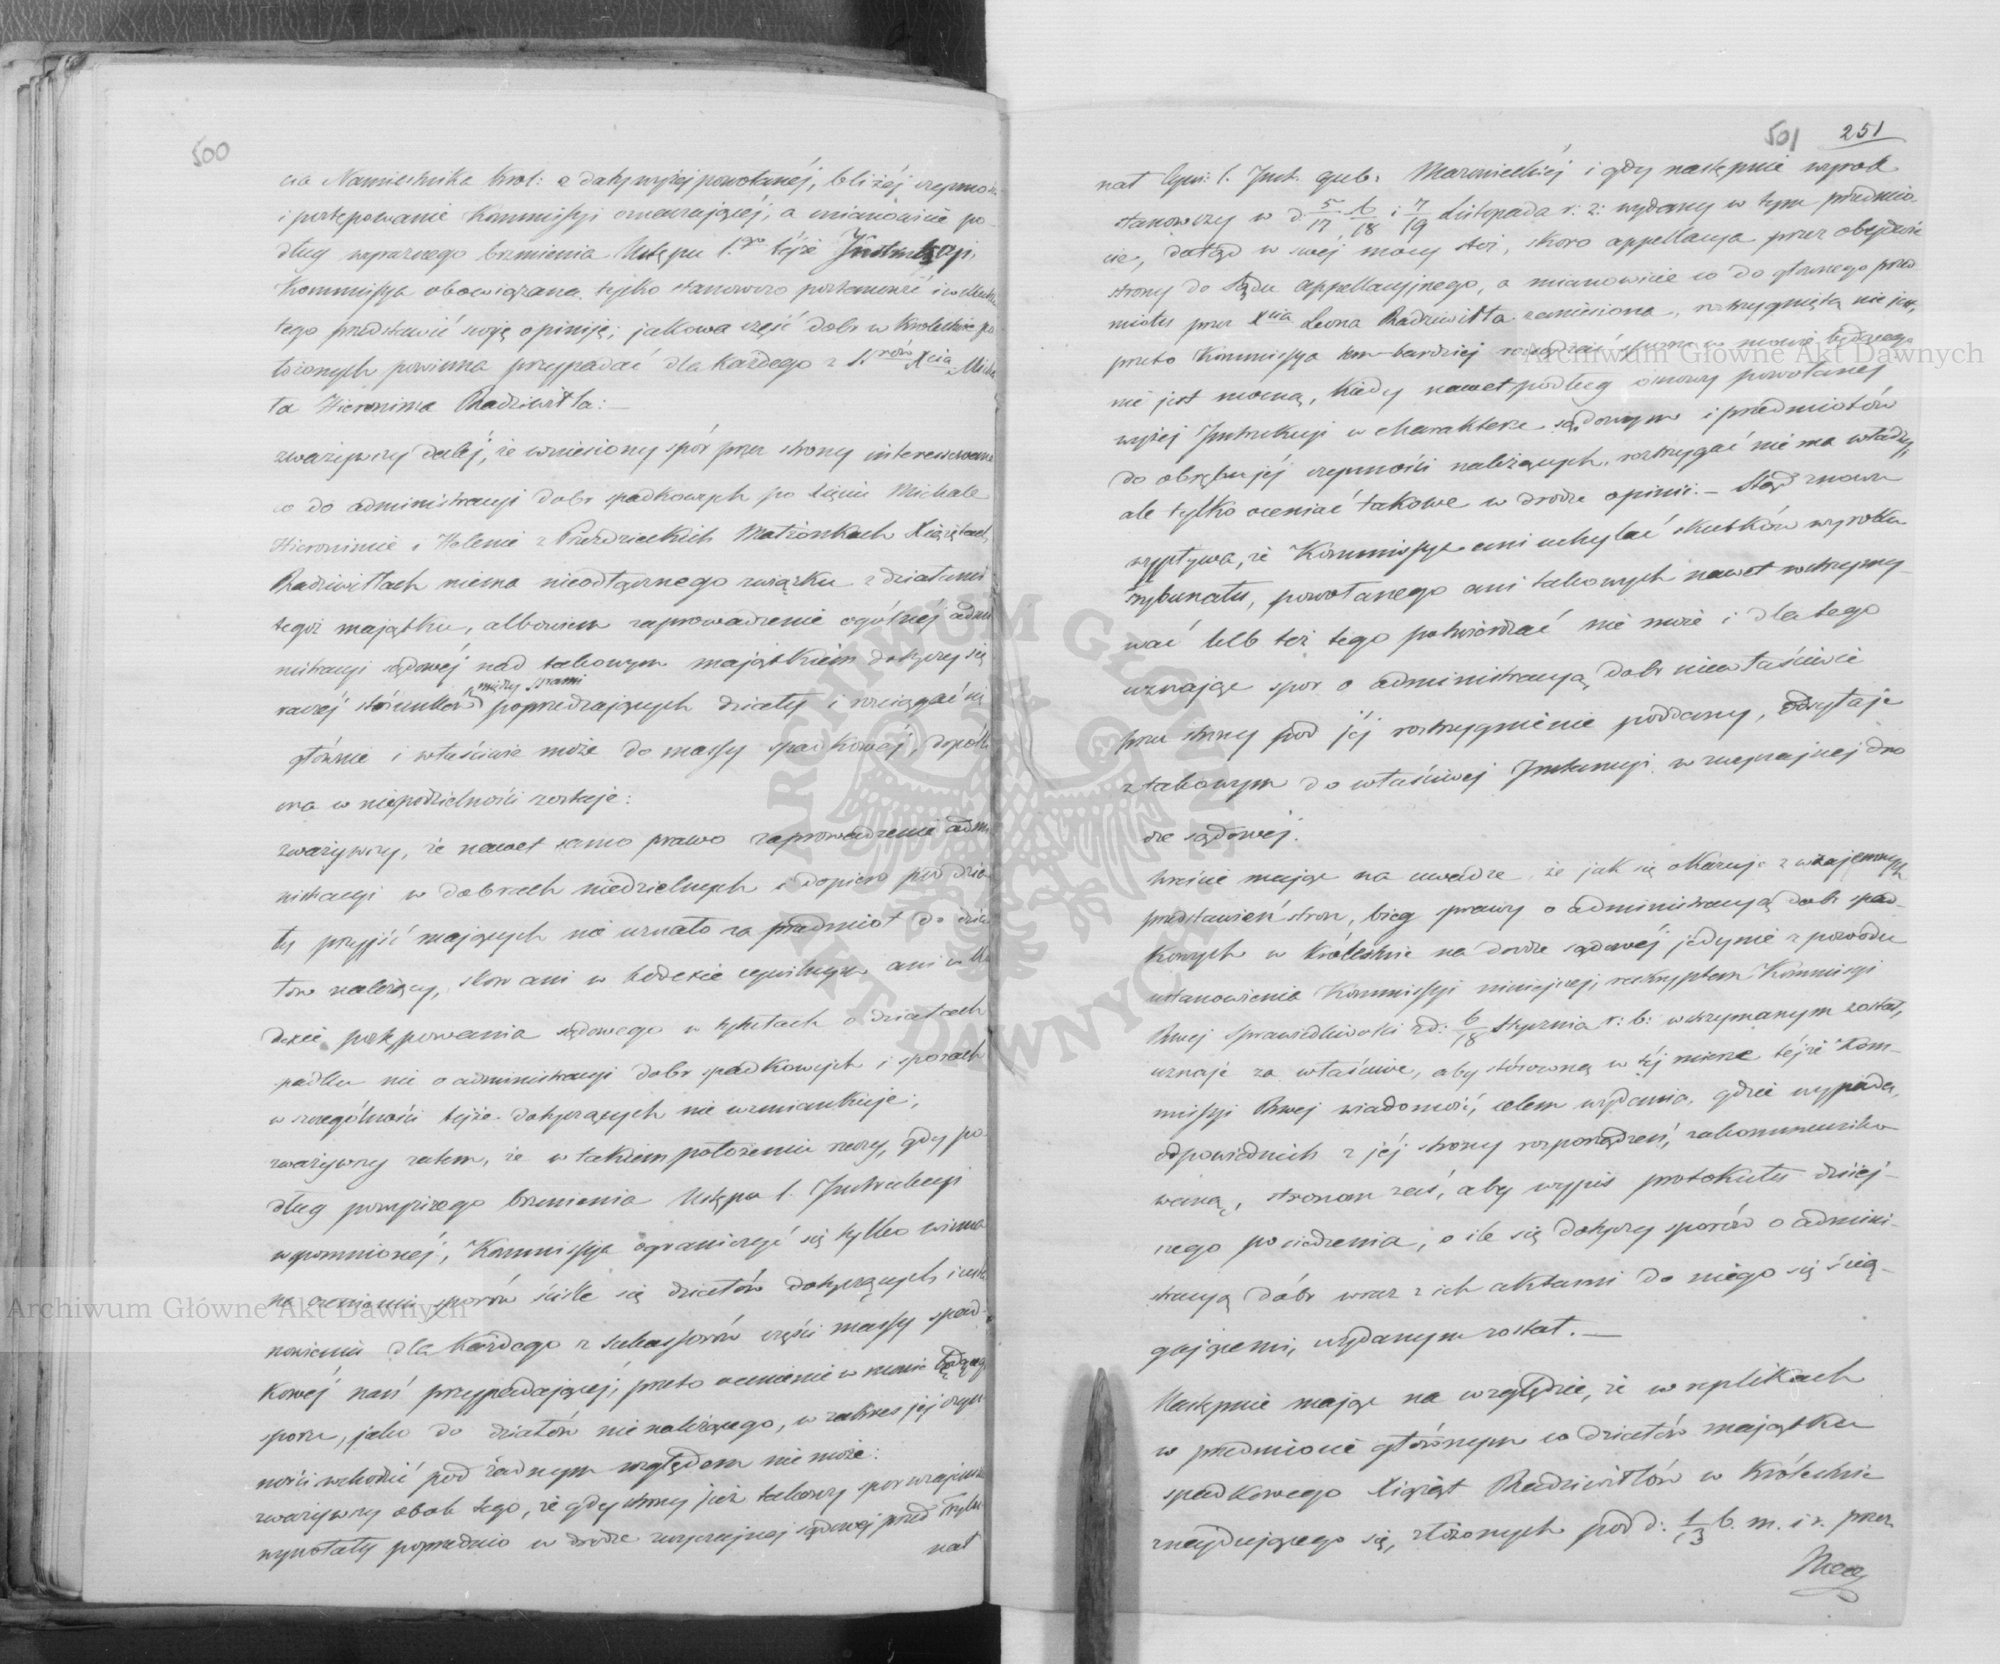 500
cia Namiestnika Król: z daty wyżej powołanéj, bliżéj czynnoś
i postępowanie Kommissyi oznaczającéj, a mianowicie po-
dług wyraźnego brzmienia Ustępu 1.go téjże Instrukcyi
Kommissya obowiązana tylko stanowczo postanowić i w skutku
tego przedstawić swoję opiniję; jakowa część dóbr w Królestwie po
łożonych powinna przypadać dla każdego z S. Xcia Micha
ła Hieronima Radziwiłła:—
zważywszy daléj, że wniesiony spór przez strony interessowane
co do administracyi dóbr spadkowych po Xięciu Michale
Hieronimie i Helenie z Przeździeckich Małżonkach Xiążętach
Radziwiłłach niema nieodłącznego związku z działami
tegoż majątku, albowiem zaprowadzenie ogólnéj admi
nistracyi sądowéj nad takowym majątkiem dotyczy się
raczéj stósunków między s..rami poprzedzających działy i rozciągać się
głównie i właściwie może do massy spadkowéj, dopóki
ona w niepodzielności zostaje:
zważywszy, że nawet samo prawo zaprowadzenie admi
nistracyi w dobrach niedzielnych a dopiero pod dzia
ły przyjść mających nie uznało za przedmiot do dzia
łów należący, skoro ani w Kodexie cywilnym ani w Ko
dexie postępowania sądowego w tytułach o działach
spadku nic o administracyi dóbr spadkowych i sporach
w szczególności téjże dotyczących nie wzmiankuje;
zważywszy zatem, że w takiem położeniu rzeczy, gdy po
dług powyższego brzmienia Ustępu 1. Instrukcyi
wspomnionéj, Kommissya ograniczyć się tylko winna
na ocenieniu sporów ściśle się działów dotyczących i usta
nowieniu dla każdego z sukcessorów części massy spad-
kowéj nań przypadającéj, przeto ocenienie w mowie będącego
sporu, jako do działów nie należącego, w zakres jéj czyn
ności wchodzić pod żadnym względem nie może:
zważywszy obok tego, że gdy strony już takowy spór wzajemnie
wywołały poprzednio w drodze zwyczajnej sądowéj przed Trybu-
nał
501 251
nał Cywi: 1. Inst. gub. Mazowieckiéj i gdy następnie wyrok
stanowczy w d. 5/17, 6/18 i 7/19 Listopada r: z: wydany w tym przedmio-
cie, dotąd w swéj mocy stoi, skoro appellacya przez obydwie
strony do Sądu appellacyjnego, a mianowicie co do głównego przed
miotu przez Xcia Leona Radziwiłła zaniesiona, rozstrzygniętą nie jest,
przeto Kommissya tem bardziej rozsądzać sporu w mowie będącego
nie jest mocną, kiedy nawet podług osnowy powołanéj
wyżéj Instrukcyi w charakterze sądowym i przedmiotów
do obrębu jéj czynności należących, rozstrzygać nie ma władzy,
ale tylko oceniać takowe w drodze opinii:— Stąd znowu
wypływa, że Kommissya ani uchylać skutków wyroku
Trybunału, powołanego ani takowych nawet wstrzymy-
wać lub też tego potwierdzać nie może i dla tego
uznając spór o administracyą dóbr niewłaściwie
przez strony pod jéj rozstrzygnienie poddany, odsyłaje
z takowym do właściwej Instancyi w zwyczajnej dro
dze sądowéj.
Wreście mając na uwadze, że jak się okazuje z wzajemnych
przedstawień stron, bieg sprawy o administracyą dóbr spad-
kowych w Królestwie na drodze sądowéj jedynie z powodu
ustanowienia Kommissyi niniejszej, reskryptem Kommissyi
Rzwej Sprawiedliwości z d: 6/18 Stycznia r: b: wstrzymanym został,
uznaje za właściwe, aby stósowną w téj mierze téjże Kom-
missyi Rzwej wiadomość, celem wydania, gdzie wypada,
odpowiednich z jéj strony rozporządzeń, zakommuniko-
waną, stronom zaś, aby wypis protokułu dzisiej-
szego posiedzenia, o ile się dotyczy sporów o admini-
stracyą dóbr wraz z ich aktami do niego się ścią-
gającemi, wydanym został.—
Następnie mając na względzie, że w replikach
w przedmiocie głównym co działów majątku
spadkowego Xiążąt Radziwiłłów w Królestwie
znajdującego się, złożonych pod d: 1/13 b. m. i r. przez